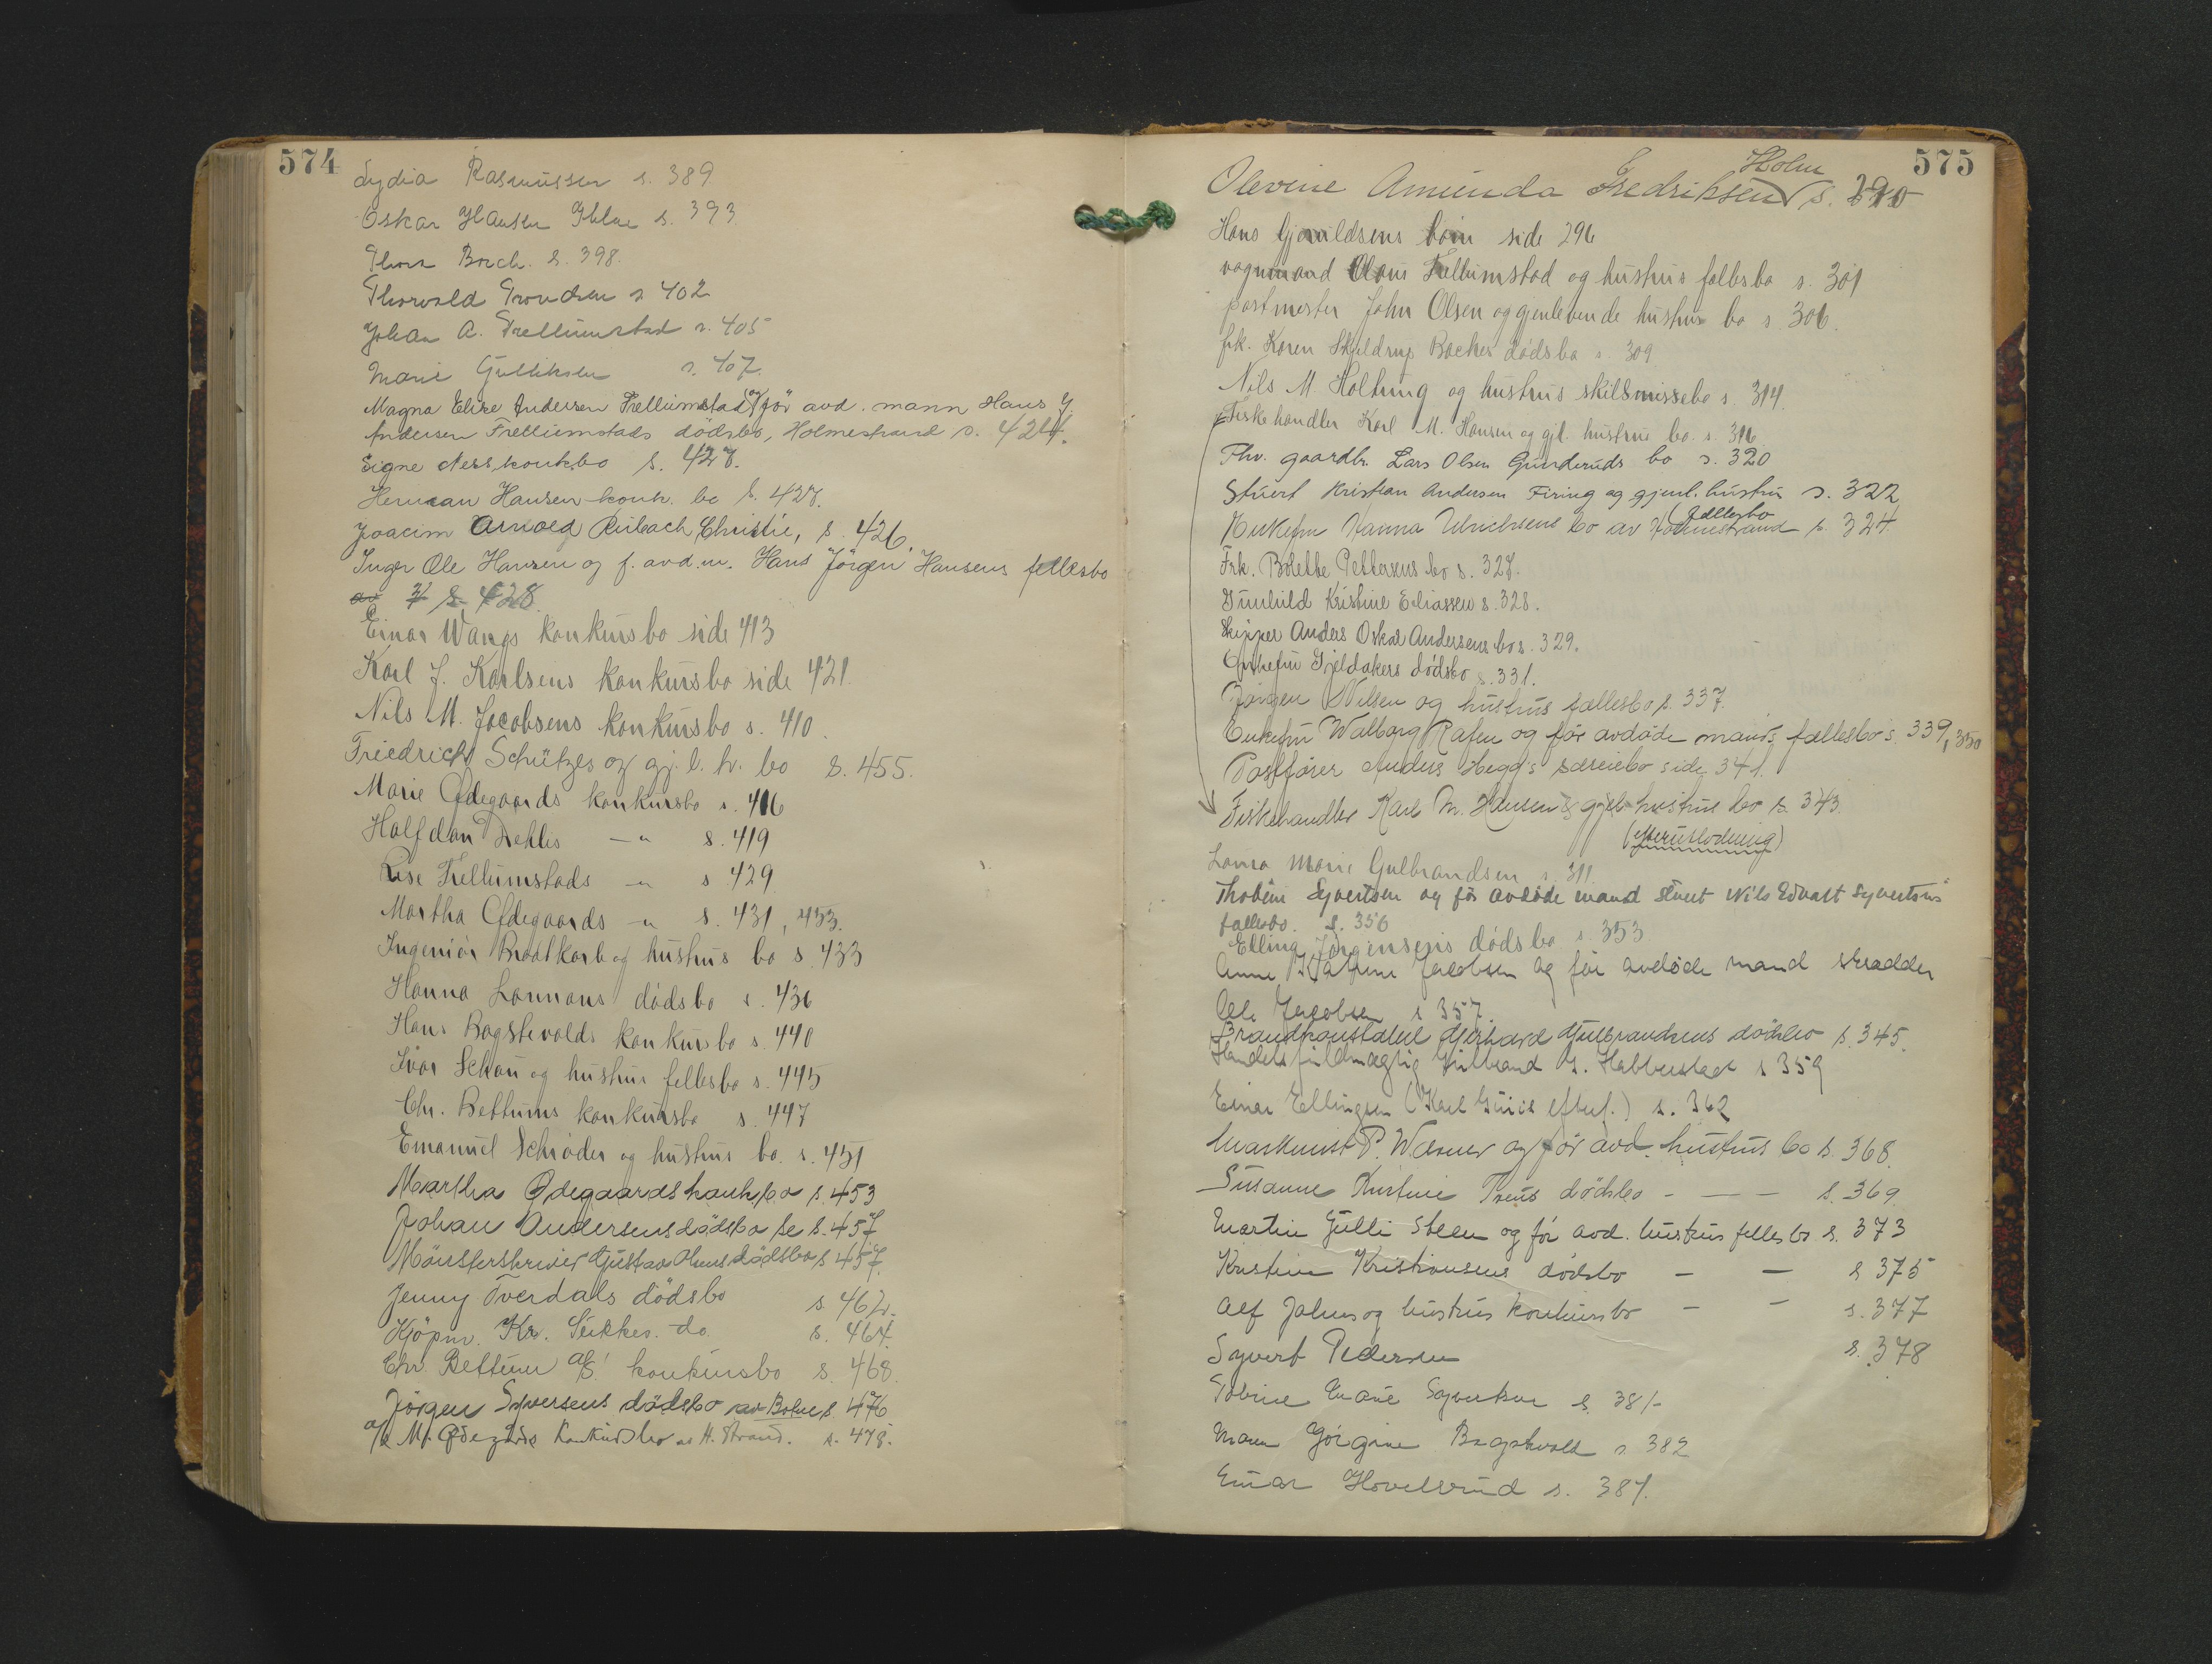 574
Lydia Rasmussen s. 389
Oskar Hansen s. 393
Thora Borch. s. 398.
Thorvald Trondsen s 402
Johan A. Trellumstad s. 405
Marie Gulliksen s. 407.
Magna Elise Andersen Trellumstad og for avd. mann Hans J.
Andersen Trellumstads dödsbo, Holmestrand s. 424.
Signe Ness konk.bo s. 427.
Herman Hansen konk. bo s. 427.
Joacim Arnold Rúbach Christie, s. 426.
Inger Ole Hansen og f. avd. m. Hans Jörgen Hansens fellesbo
av s 428.
Einar Wangs konkursbo side 413
Karl J. Karlsens konkursbo side 421
Nils M. Jacobsens konkursbo s. 410.
Friedrich Schützes og gj. l. h. bo s. 455.
Marie Ødegaards konkursbo s. 416
Halfdan Dehlis — " s. 419
Lise Trellumstads — " s 429
Martha Ødegaards — " s. 431, 453.
Ingeniør Braatkarb og hustrus bo s. 433
Hanna Lannans dødsbo s. 436
Hans Bagstevolds konkursbo s. 440
Ivar Schau og hustrus fellesbo s. 445
Chr. Bettums konkursbo s. 447
Emanuel Schrøder og hustrus bo. s. 451
Martha Ødegaards konk.bo s. 453
Johan Andersens dödsbo se s. 457
Mönsterskriver Gustav Olsens dödsbo s 457.
Jenny Tverdals dödsbo s. 462.
Kjöpm. Kr. Sukkes. do. s. 464.
Chr. Bettum A/S. konkursbo s. 468.
Jörgen Syversens dödsbo av Botne s. 476
a/s M. Ødegårds Konkursbo av H. Strand. s. 478.
575
Holm
Olevine Amunda Fredriksen s. 290
Hans Gjerulldsens bo side 296
vognmand Olaus Trellumstad og hustrus fællesbo s. 301
postmester John Olsen og gjenlevende hustrus bo s. 306.
frk. Karen Skjeldrup Backes dödsbo s. 309
Nils M Holtung og hustrus skilsmissebo s. 314.
Fiskehandler Karl M. Hansen og gjl. hustrus bo. s. 316
Fhv. gaardbr. Lars Olsen Gunderuds bo s. 320
Stuert Kristian Andersen Firing og gjenl. hustru s. 322
(fællesbo
Enkefru Hanna Ulrichsens bo av Holmestrand s. 324
Frk. Bolette Pettersens bo s. 327.
Gunhild Kristine Eliassen s. 328.
Skipper Anders Oskar Andersens bo s. 329.
Enkefru Gjeldakers dödsbo s. 331.
Jörgen Nilsen og hustrus fællesbo s. 337.
Enkefru Walborg Rafen og før avdøde mands fællesbo s. 339, 350
Postfører Anders Heggs særeiebo side 341.
Fiskehandler Karl M. Hansen & gjl. hustrus bo s. 343.
(efterutlodning)
Laura Marie Gulbrandsen s. 311
Thobine Syvertsen og før avdøde mand stuert Nils Edvart Syvertsens
fællesbo. s. 356
Elling Jørgensens dødsbo s. 353
Anne Jacobsen og før avdøde mand skrædder
Ole Jacobsen s 357.
Brandkonstabel Gerhard Gulbrandsens dødsbo s. 345.
Handelsfuldmægtig Gulbrand J. Habberstad s 359
Einar Ellingsen (Karl efterf.) s. 362
Maskinist P. Wærner og før avd. hustrus bo s. 368.
Susanne Kristine dödsbo - — — s. 369
Martin Gulli Steen og før avd. hustrus fellesbo s. 373
Kristine Kristiansens dödsbo — — s 375
Alf Johns og hustrus konkursbo — - s. 377
Syvert Pedersen s. 378
Tobine Marie Syvertsen s. 381
Maren Jörgine Bagstevold s. 382
Einar Hovelsrud s. 387.